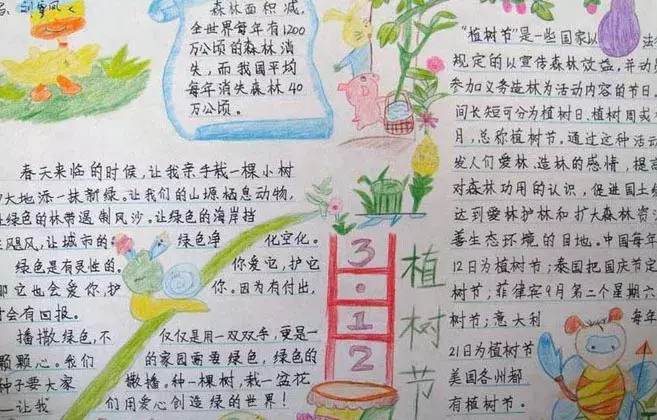 森林面积减,
全世界每年有1200
万公顷的森林消
失,而我国平均
每年消失森林40
万公顷。
春天来临的时候,让我亲手栽一棵小树
大地添一抹新绿。让我们的山塬栖息动物,
绿色的林带遏制风沙。让绿色的海岸挡
飓风,让城市的 绿色净 化空化。
绿色是有灵性的。 你爱它,护它
它也会爱你,护 你。因为有付出,
会有回报。
播撒绿色,不 仅仅是用一双双手,更是一
颗颗心。我们 的家园需要绿色,绿色的
种子要大家 撒播。种一棵树,栽一盆花
一让我 们用爱心创造绿的世界!
3·12
植树节
“植树节”是一些国家以 法
规定的以宣传森林效益,并动
参加义务造林为活动内容的节日。
间长短可分为植树日,植树周或
月,总称植树节,通过这种活动
发人们爱林、造林的感情,提高
对森林功用的认识,促进国土
达到爱林护林和扩大森林资
善生态环境的目地。中国每年
12日为植树节;泰国把国庆节定
树节,菲律宾9月第二个星期六
树节;意大利 每年
21日为植树节
美国各州都
有植树节。